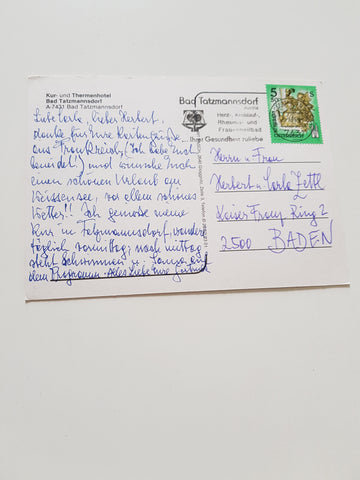 Kur- und Thermenhotel
Bad Tatzmannsdorf
A-7431 Bad Tatzmannsdorf
Liebe Carla, lieber Herbert,
danke für Eure Kartengrüße
aus Frankreich (Ich habe Euch
beneidet!) und wünsche Euch
einen schönen Urlaub am
Weissensee, vor allem schönes
Wetter!! Ich genieße meine
Kur in Tatzmannsdorf, wandere
täglich vormittag, nachmittag
steht Schwimmen u. Sauna auf
dem Programm. Alles Liebe Eure
Bad Tatzmannsdorf
Herz-, Kreislauf-,
Rheuma- und
Frauenheilbad
... Ihrer Gesundheit zuliebe
5
S
Herrn u. Frau
Herbert u. Carla
Kaiser Franz Ring 2
2500 BADEN